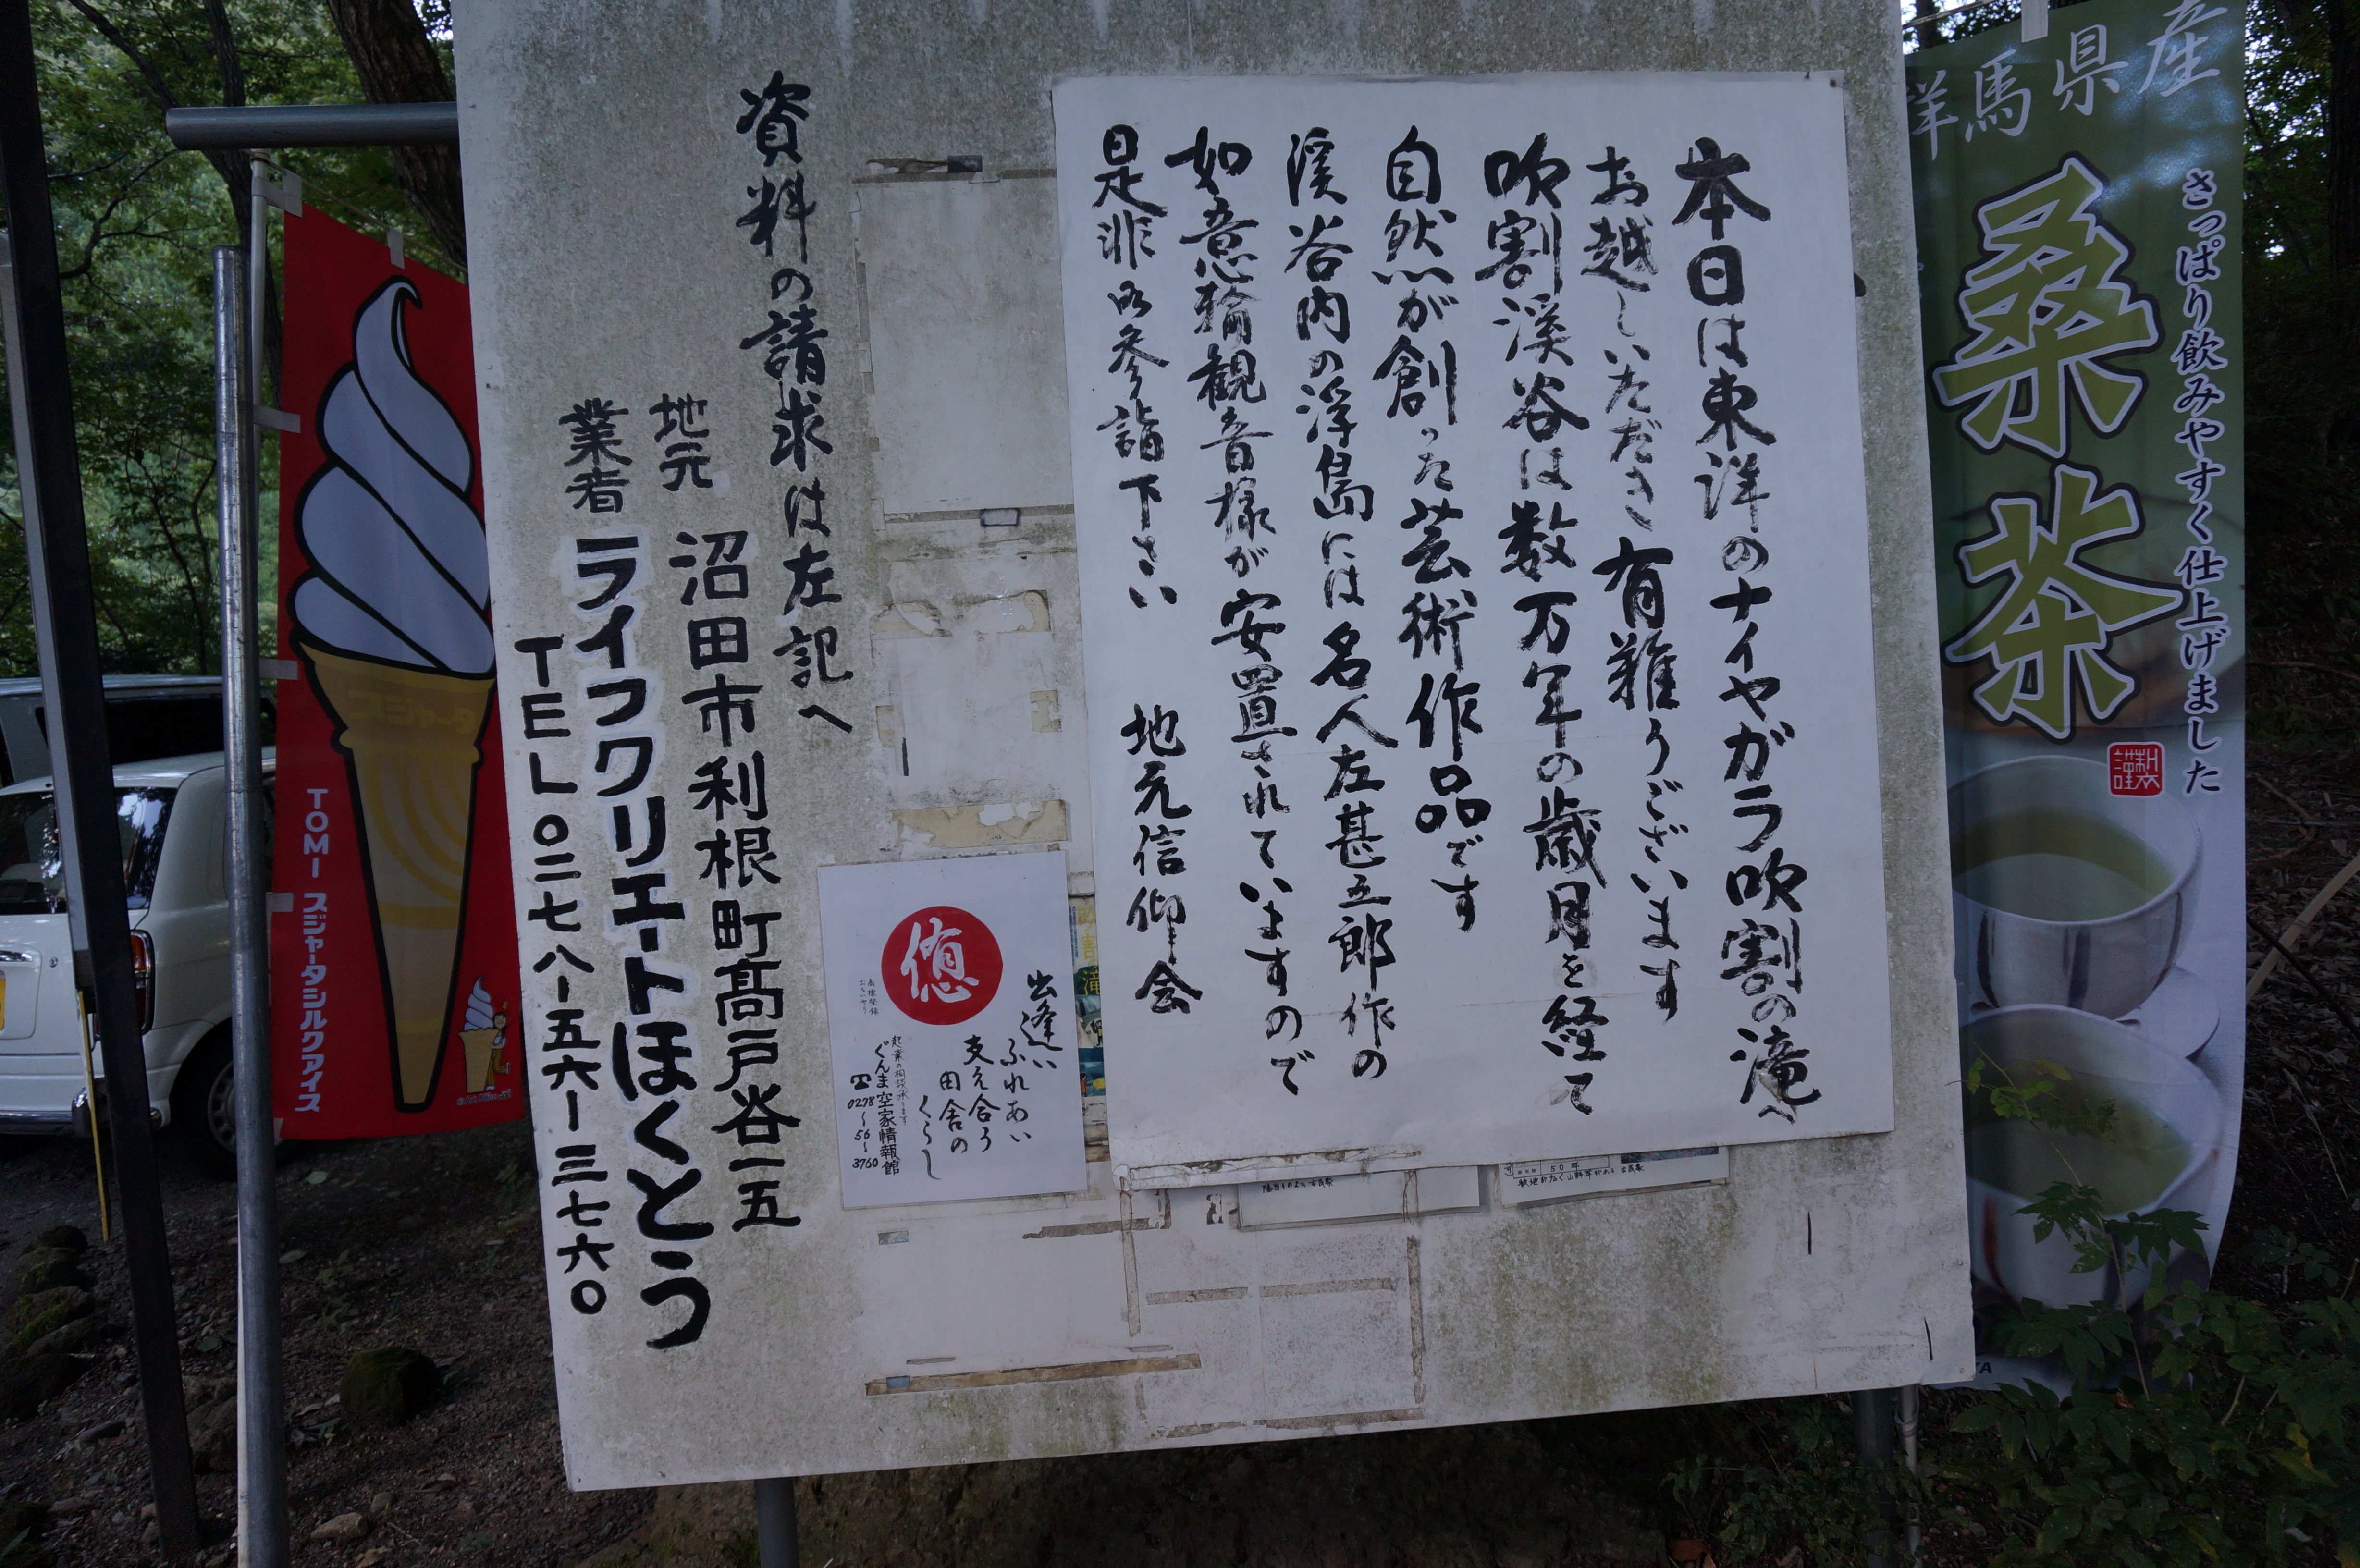 群馬県産
さっぱり飲みやすく仕上げました
桑茶
謹製
本日は東洋のナイヤガラ吹割の滝へ
お越しいただき有難うございます
吹割渓谷は数万年の歳月を経て
自然が創った芸術作品です
渓谷内の浮島には名人左甚五郎作の
如意輪観音様が安置されていますので
是非御参詣下さい 地元信仰会
資料の請求は左記へ
地元
業者
沼田市利根町髙戸谷一五
ライフクリエートほくとう
TEL〇二七八ー五六ー三七六〇
悠
出逢い
ふれあい
支え合う
田舎の
くらし
起業の相談承ります
ぐんま空家情報館
☎0278~56~3760
50年
敷地広く山野草がある古民家
スジャータ
TOMI スジャータシルクアイス